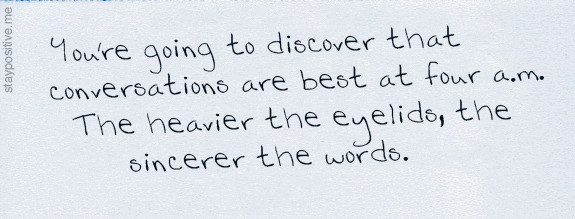 staypositive.me
You're going to discover that
conversations are best at four a.m.
The heavier the eyelids, the
sincerer the words.